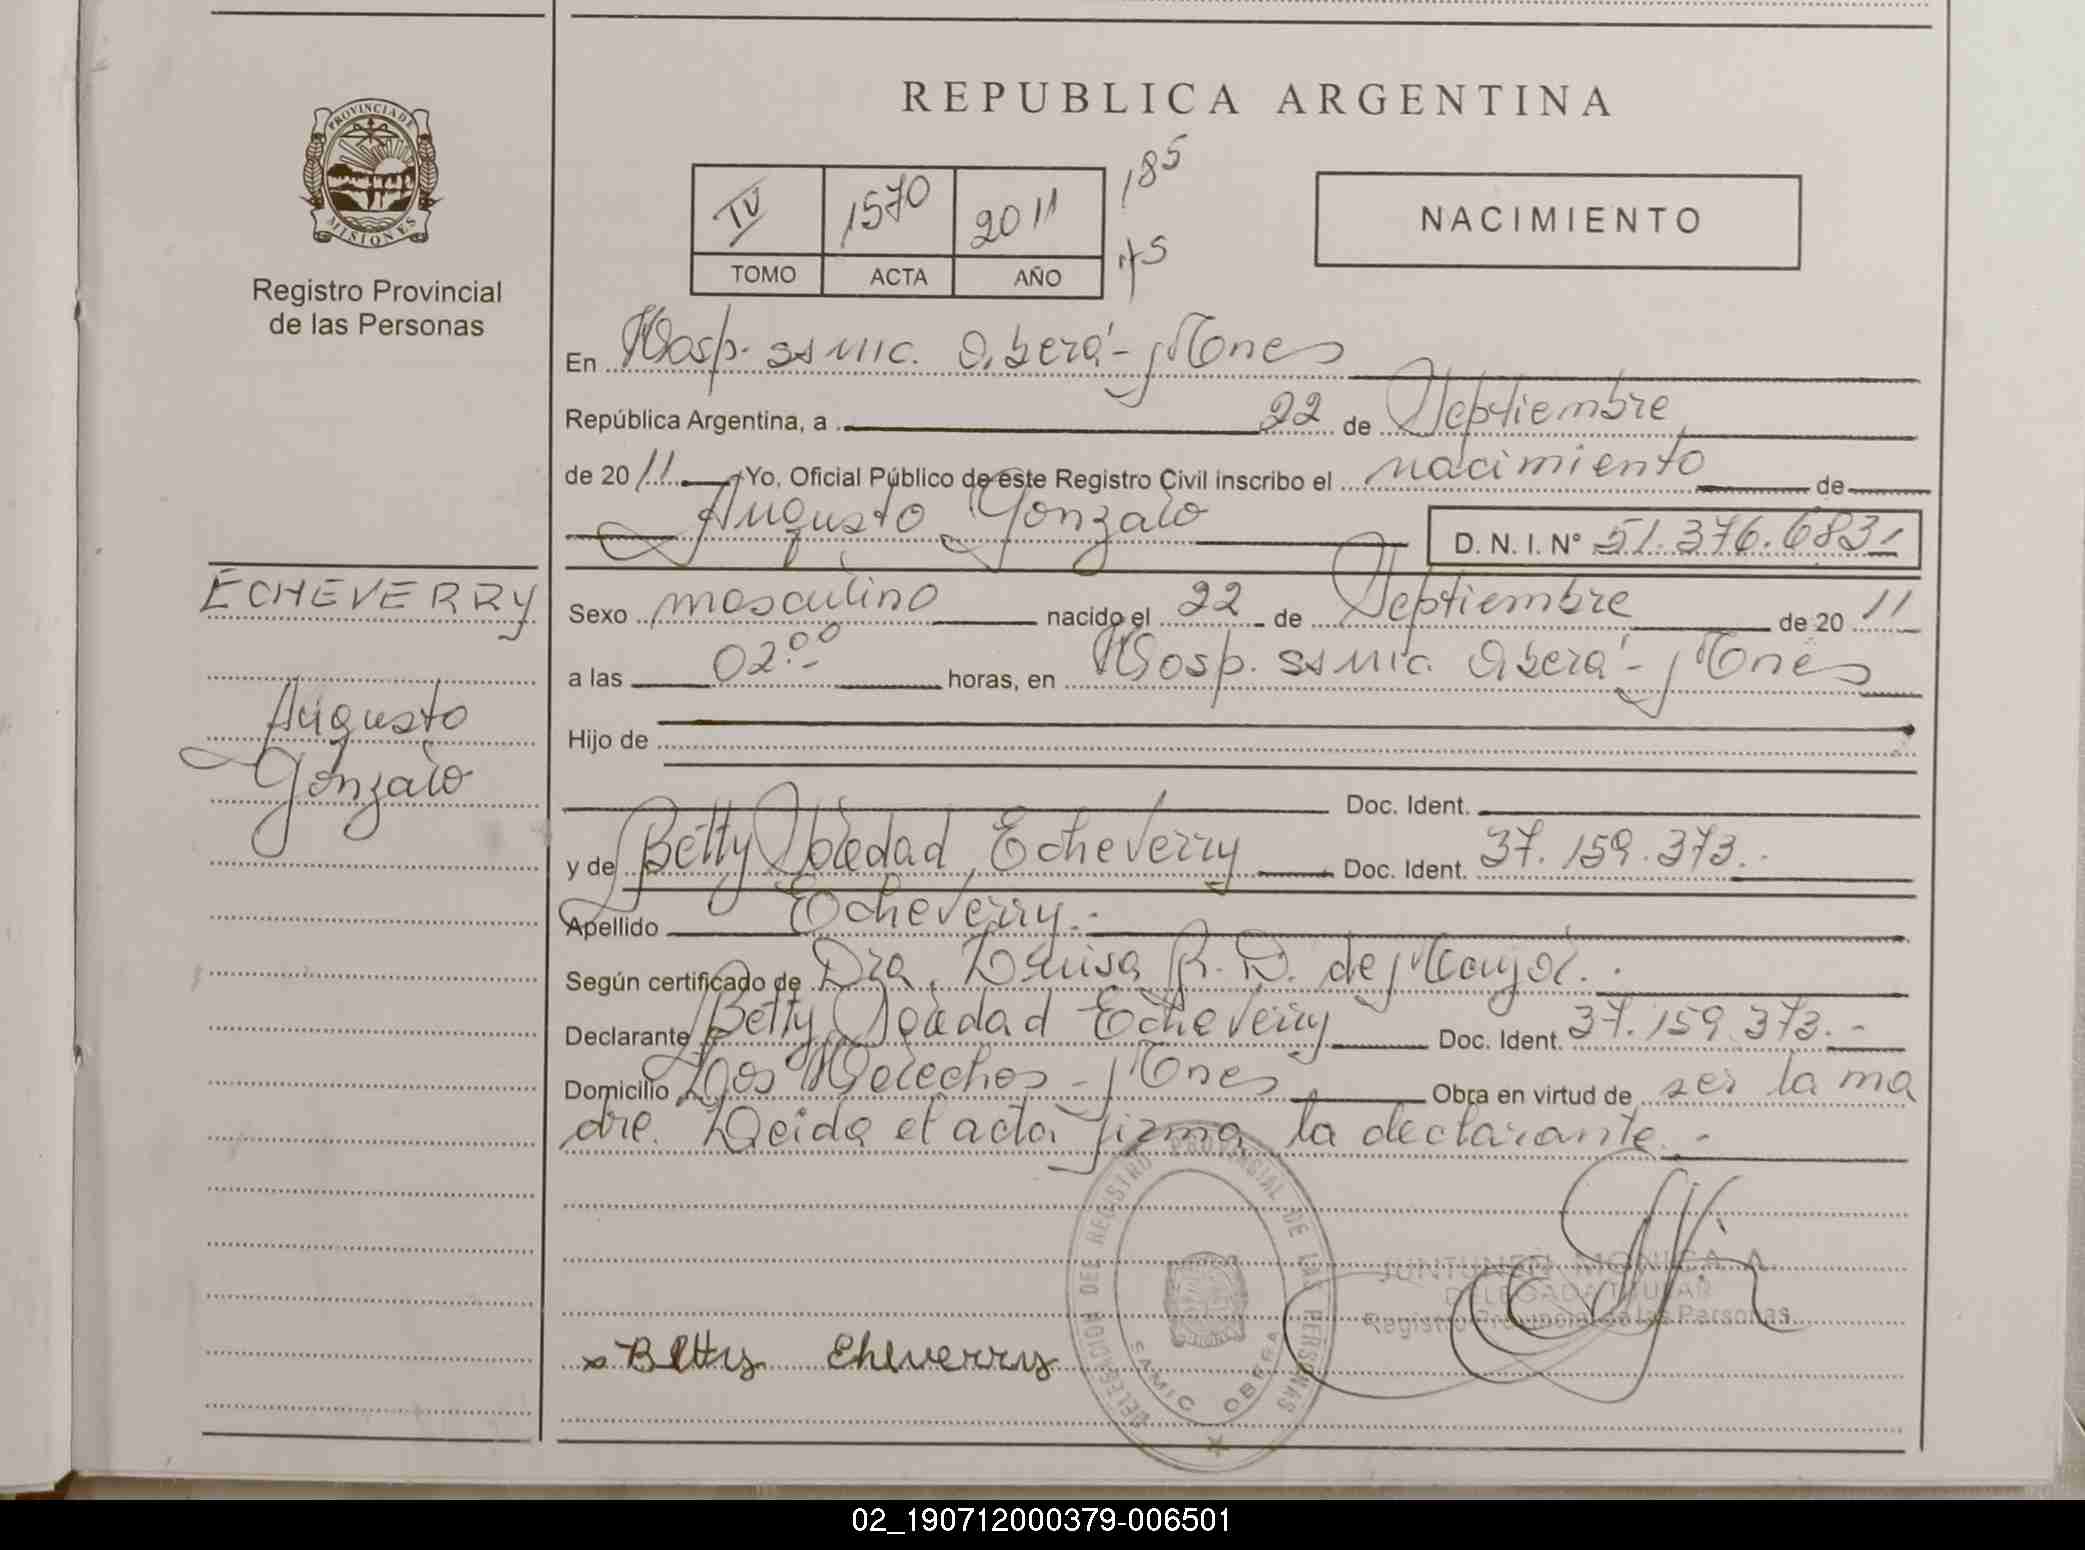 REPUBLICA ARGENTINA
PROVINCIA DE
MISIONES
Registro Provincial
de las Personas
IV 1570 2011 185
TOMO ACTA AÑO
NACIMIENTO
En Hosp. ssmic. Oberá - Mones
República Argentina, a 22 de Septiembre
de 2011 Yo, Oficial Público de este Registro Civil inscribo el nacimiento de
Augusto Gonzalo D. N. I. N° 51.376.683.-
ECHEVERRY
Augusto
Gonzalo
Sexo masculino nacido el 22 de Septiembre de 2011
a las 02:00 horas, en Hosp. ssmic. Oberá - Mones
Hijo de
Doc. Ident.
y de Betty Soledad Echeverry Doc. Ident. 37.159.373.-
Apellido Echeverry.-
Según certificado de Dra. Luisa R. D. de
Declarante Betty Soledad Echeverry Doc. Ident. 37.159.373.-
Domicilio Los Helechos - Mones Obra en virtud de ser la ma
dre. Leida el acta firma la declarante.-
DELEGACION DEL REGISTRO PROVINCIAL DE LAS PERSONAS
SAMIC OBERA
JUNTUNEN MONICA A.
DELEGADA TITULAR
Registro Provincial de las Personas
x Betty Eheverry
02_190712000379-006501